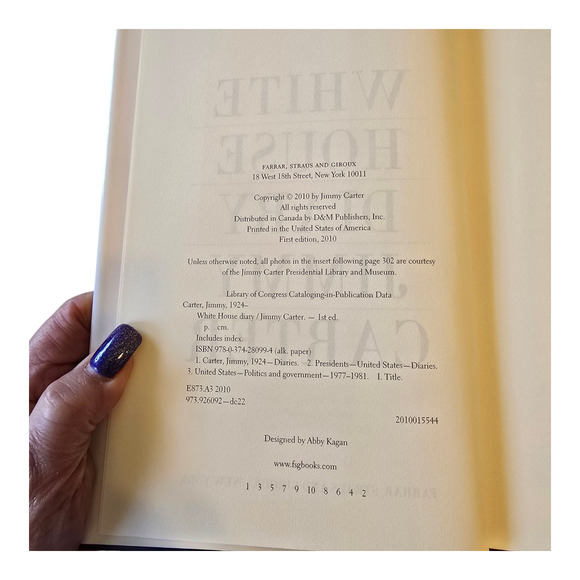 FARRAR, STRAUS AND GIROUX
18 West 18th Street, New York 10011
Copyright © 2010 by Jimmy Carter
All rights reserved
Distributed in Canada by D&M Publishers, Inc.
Printed in the United States of America
First edition, 2010
Unless otherwise noted, all photos in the insert following page 302 are courtesy
of the Jimmy Carter Presidential Library and Museum.
Library of Congress Cataloging-in-Publication Data
Carter, Jimmy, 1924–
White House diary / Jimmy Carter. — 1st ed.
p. cm.
Includes index.
ISBN 978-0-374-28099-4 (alk. paper)
1. Carter, Jimmy, 1924—Diaries. 2. Presidents—United States—Diaries.
3. United States—Politics and government—1977–1981. I. Title.
E873.A3 2010
973.926092—dc22
2010015544
Designed by Abby Kagan
www.fsgbooks.com
1 3 5 7 9 10 8 6 4 2
WHITE
HOUSE
DIARY
JIMMY
CARTER